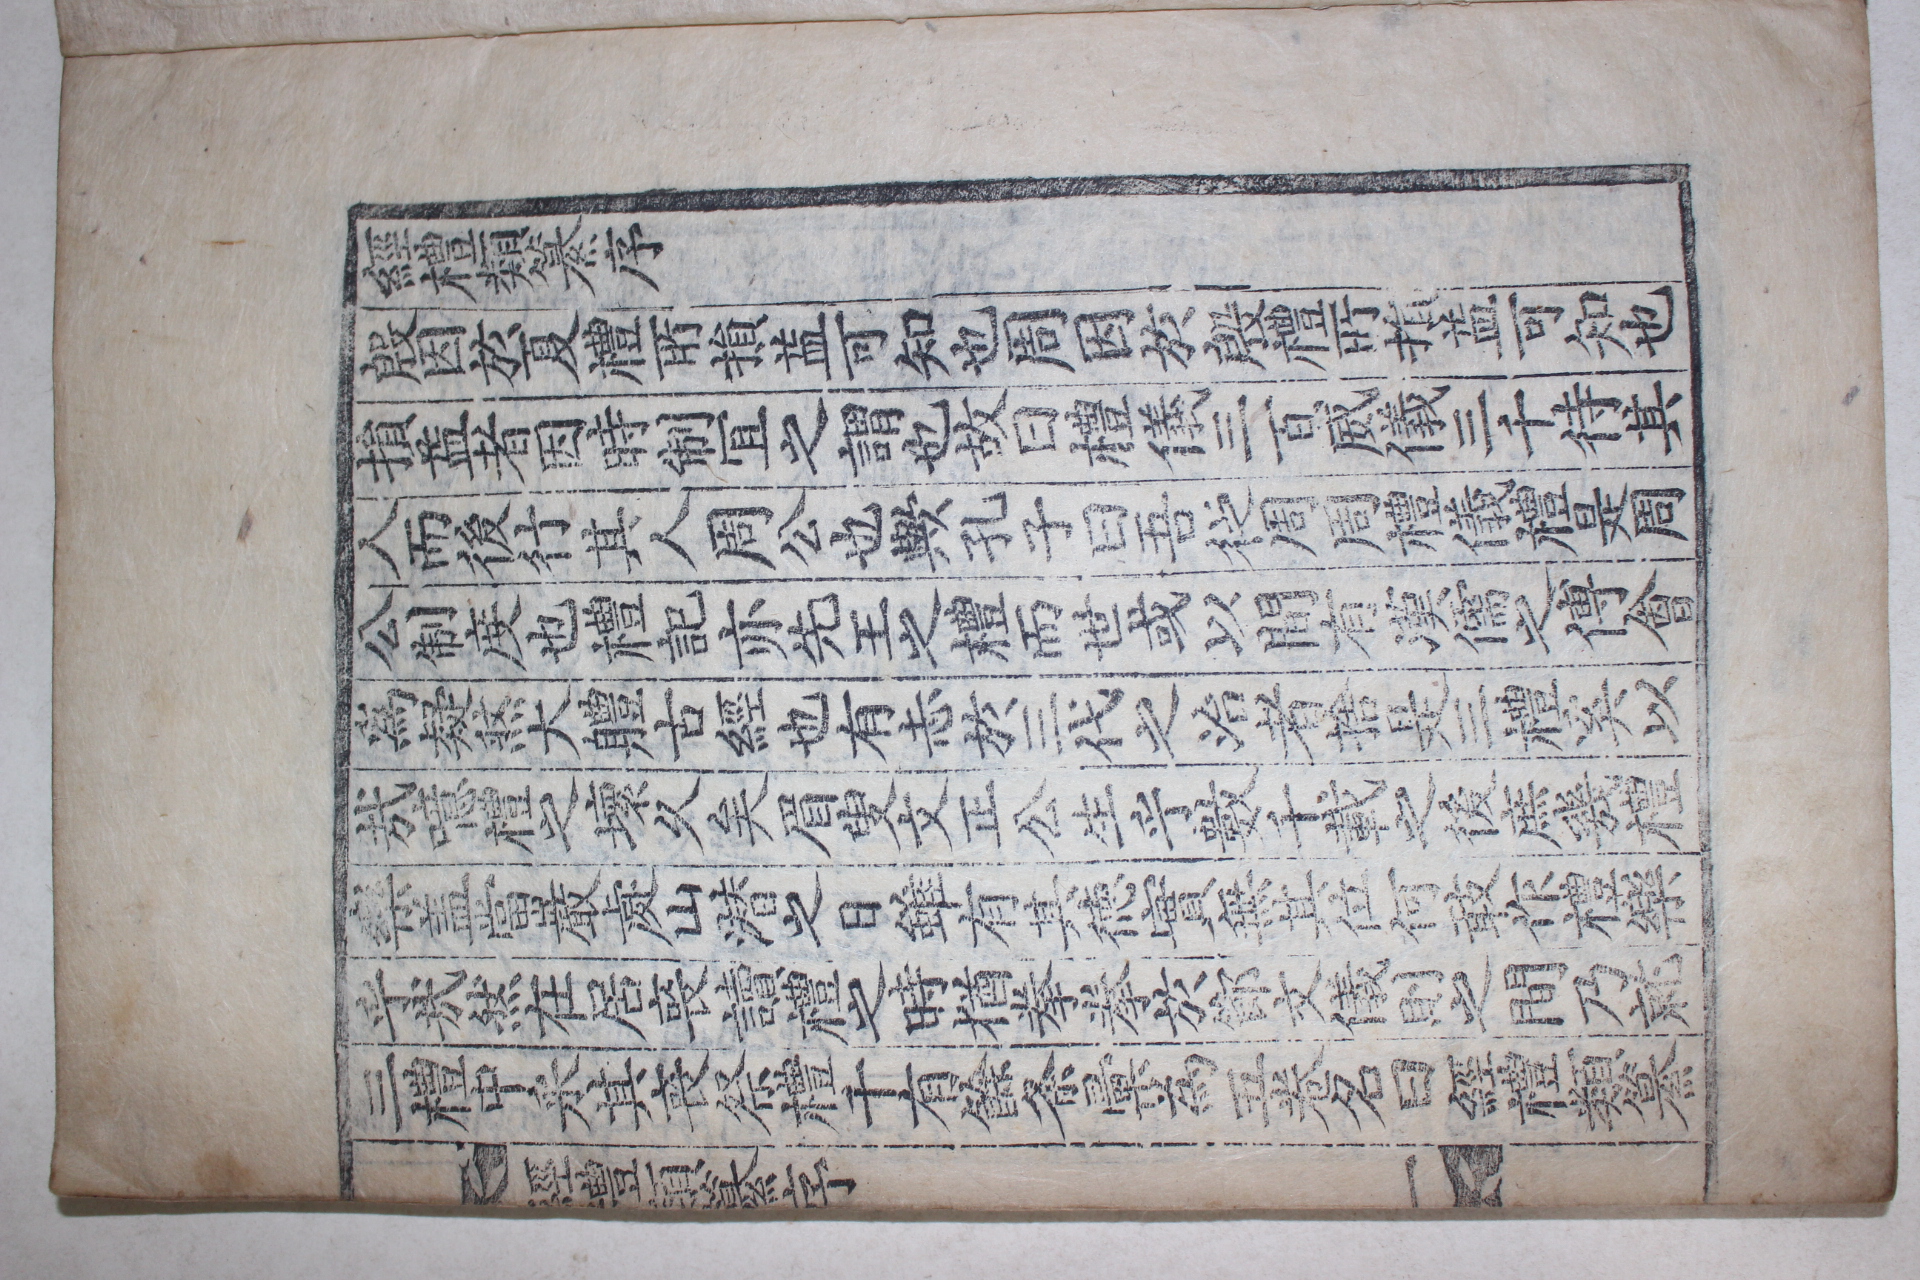 經禮類纂序
殷因於夏禮所損益可知也周因於殷禮所損益可知也
損益者因時制宜之謂也故曰禮儀三百威儀三千待其
人而後行其人周公也歟孔子曰吾從周周禮儀禮是周
公制度也禮記亦先王之禮而世或以間有漢儒之傅會
爲疑然大體古經也有志於三代之治者捨是三禮奚以
哉噫禮之壞久矣眉叟文正公生乎數千載之後庶幾禮
樂盖當之日雖有其德實無其位何敢作禮樂
乎哉然在居喪讀禮之時猶拳拳於節文儀則之間乃就
三禮中采其喪祭禮十有餘爲五卷名曰經禮類纂
經禮類纂序 一